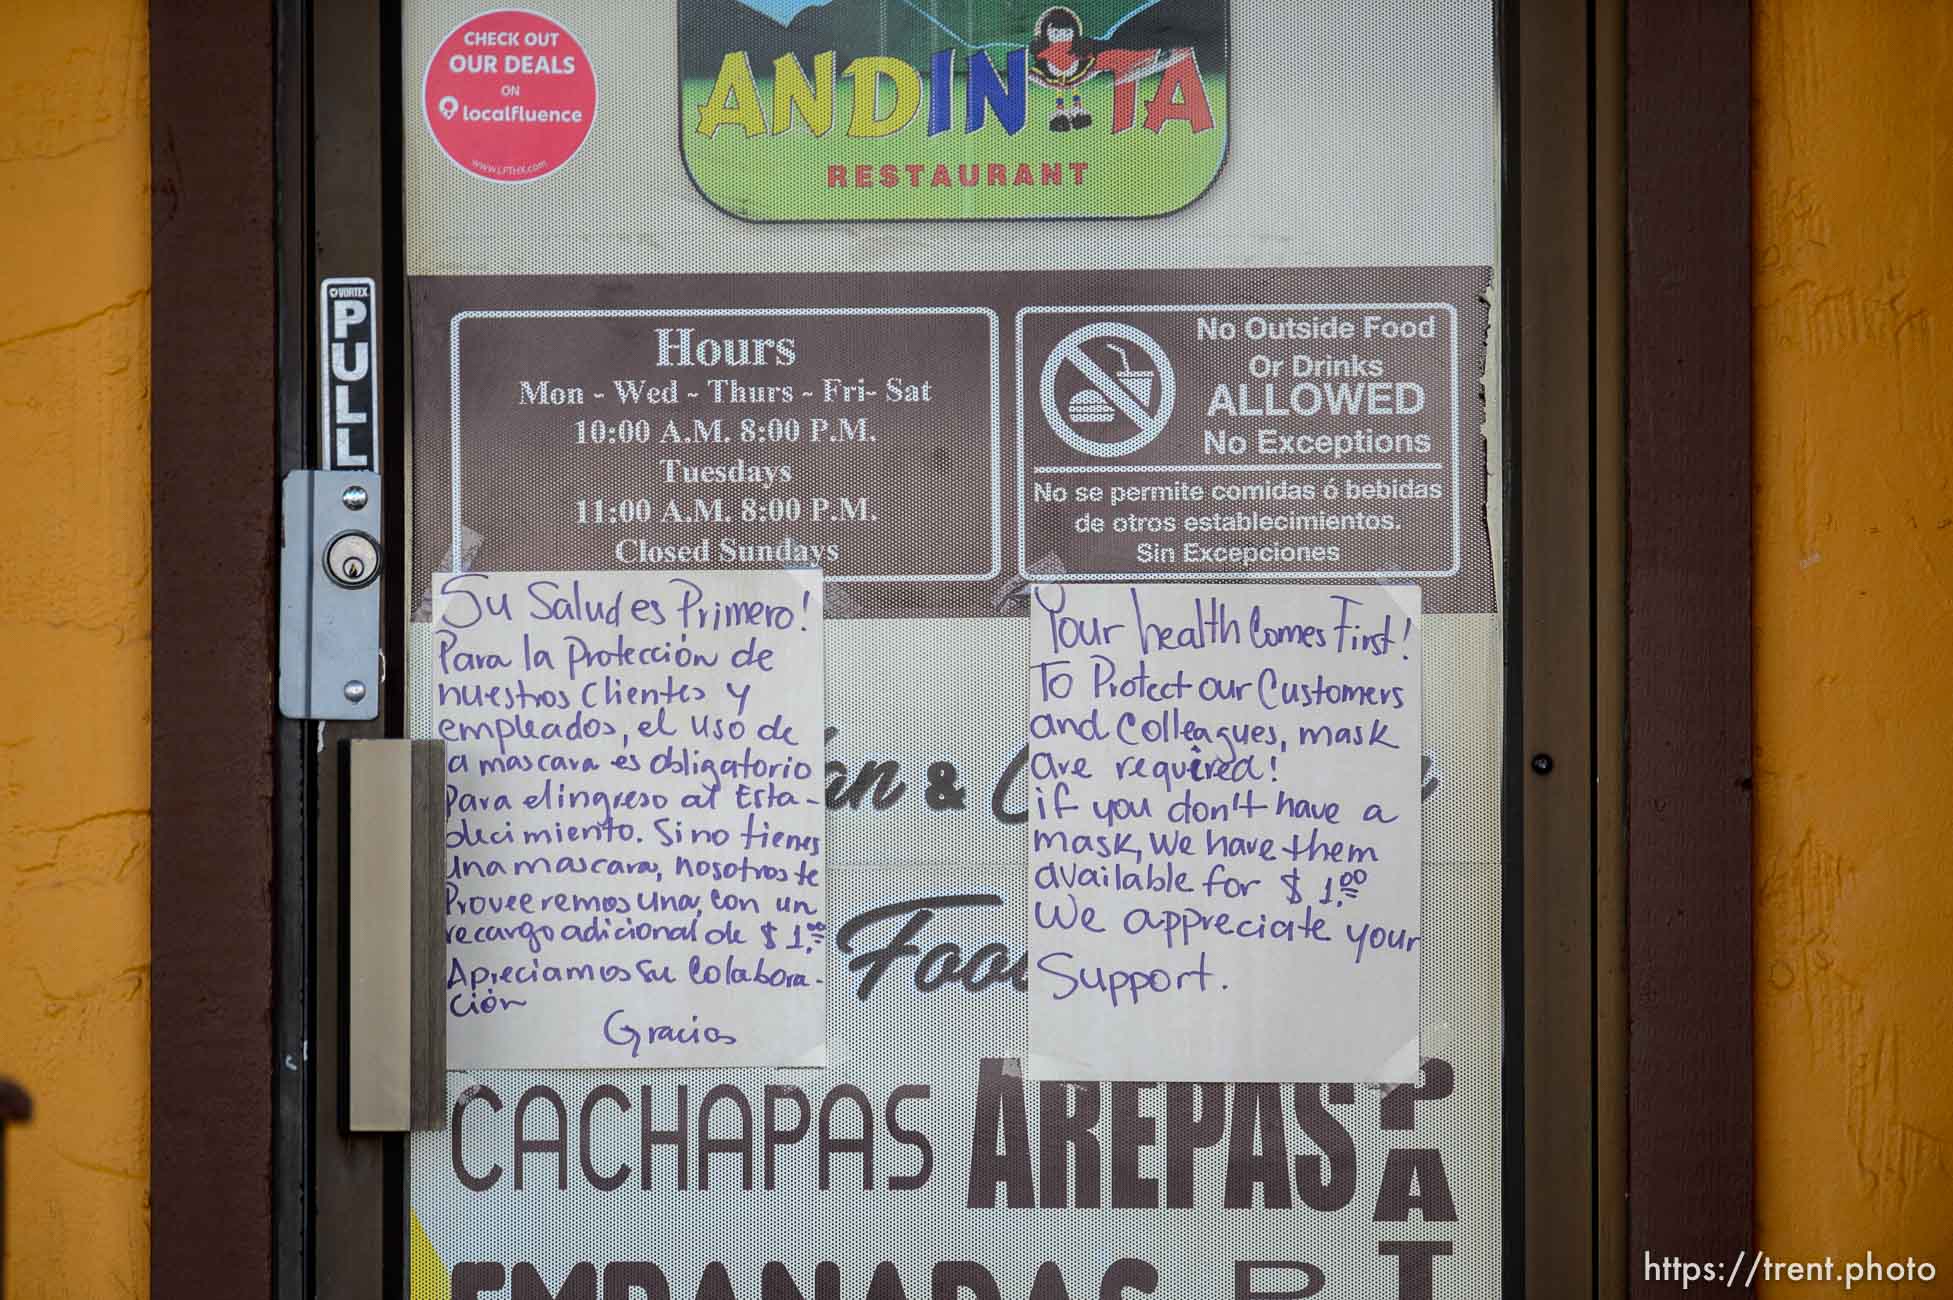 CHECK OUT
OUR DEALS
ON
localfluence
www.LFTHX.com
ANDINITA
RESTAURANT
VORTEX
PULL
Hours
Mon - Wed - Thurs - Fri- Sat
10:00 A.M. 8:00 P.M.
Tuesdays
11:00 A.M. 8:00 P.M.
Closed Sundays
No Outside Food
Or Drinks
ALLOWED
No Exceptions
No se permite comidas ó bebidas
de otros establecimientos.
Sin Excepciones
Su Salud es Primero!
Para la Protección de
nuestros Clientes y
empleados, el uso de
a mascara es obligatorio
Para el ingreso al Esta-
blecimiento. Si no tienes
una mascara, nosotros te
Proveeremos una, con un
recargo adicional de $ 1.00
Apreciamos su Colabora-
ción
Gracias
Your health Comes First!
To Protect our Customers
and Colleagues, mask
are required!
if you don't have a
mask, We have them
available for $ 1.00
We appreciate your
Support.
&
Foo
CACHAPAS AREPAS
PAT
EMPANADAS
https://trent.photo